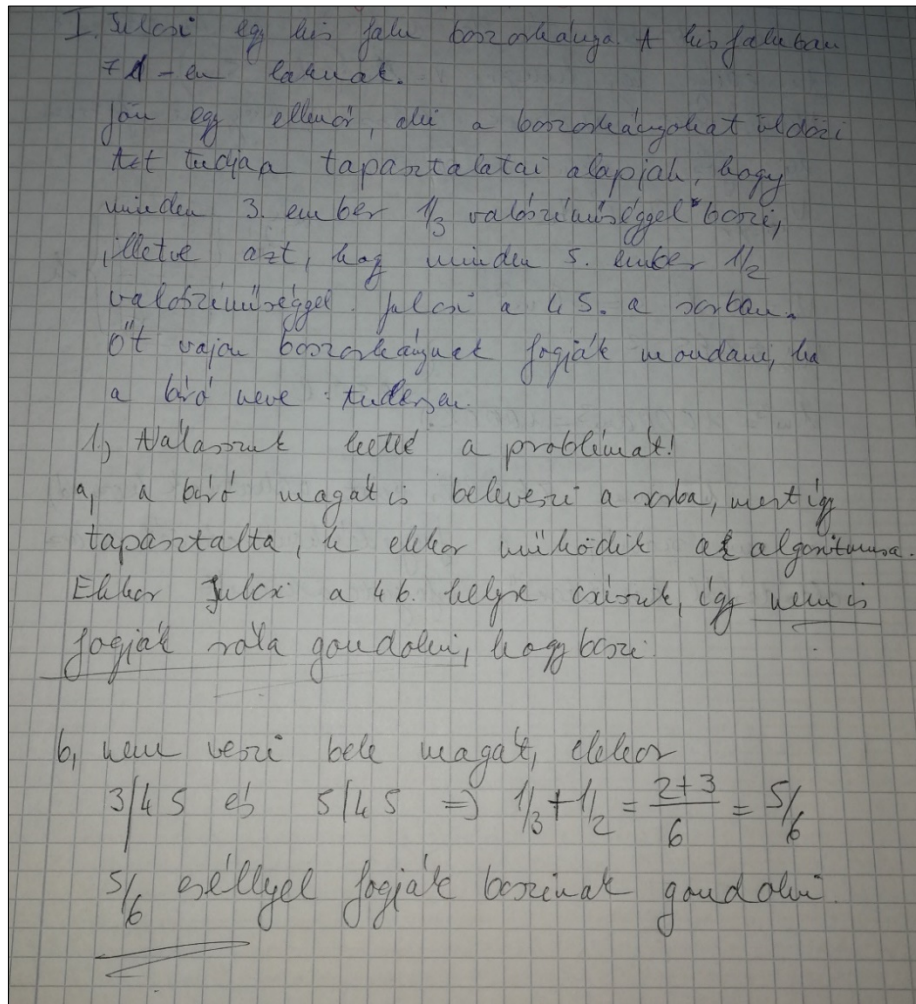 I. Julcsi egy kis falu boszorkánya. A kis faluban
71-en laknak.
Jön egy ellenőr, aki a boszorkányokat üldözi
Azt tudja a tapasztalatai alapján, hogy
minden 3. ember 1/3 valószínűséggel boszi,
illetve azt, hog minden 5. ember 1/2
valószínűséggel. Julcsi a 45. a sorban.
Őt vajon boszorkánynak fogják mondani, ha
a bíró neve :
1, Válasszuk ketté a problémát!
a, a bíró magát is beleveszi a sorba, mert így
tapasztalta, h ekkor működik az algoritmusa.
Ekkor Julcsi a 46. helyre csúszik, így nem is
fogják róla gondolni, hogy boszi.
b, nem veszi bele magát, ekkor
3/45 és 5/45 => 1/3 + 1/2 = 2+3/6 = 5/6
5/6 eséllyel fogják boszinak gondolni.